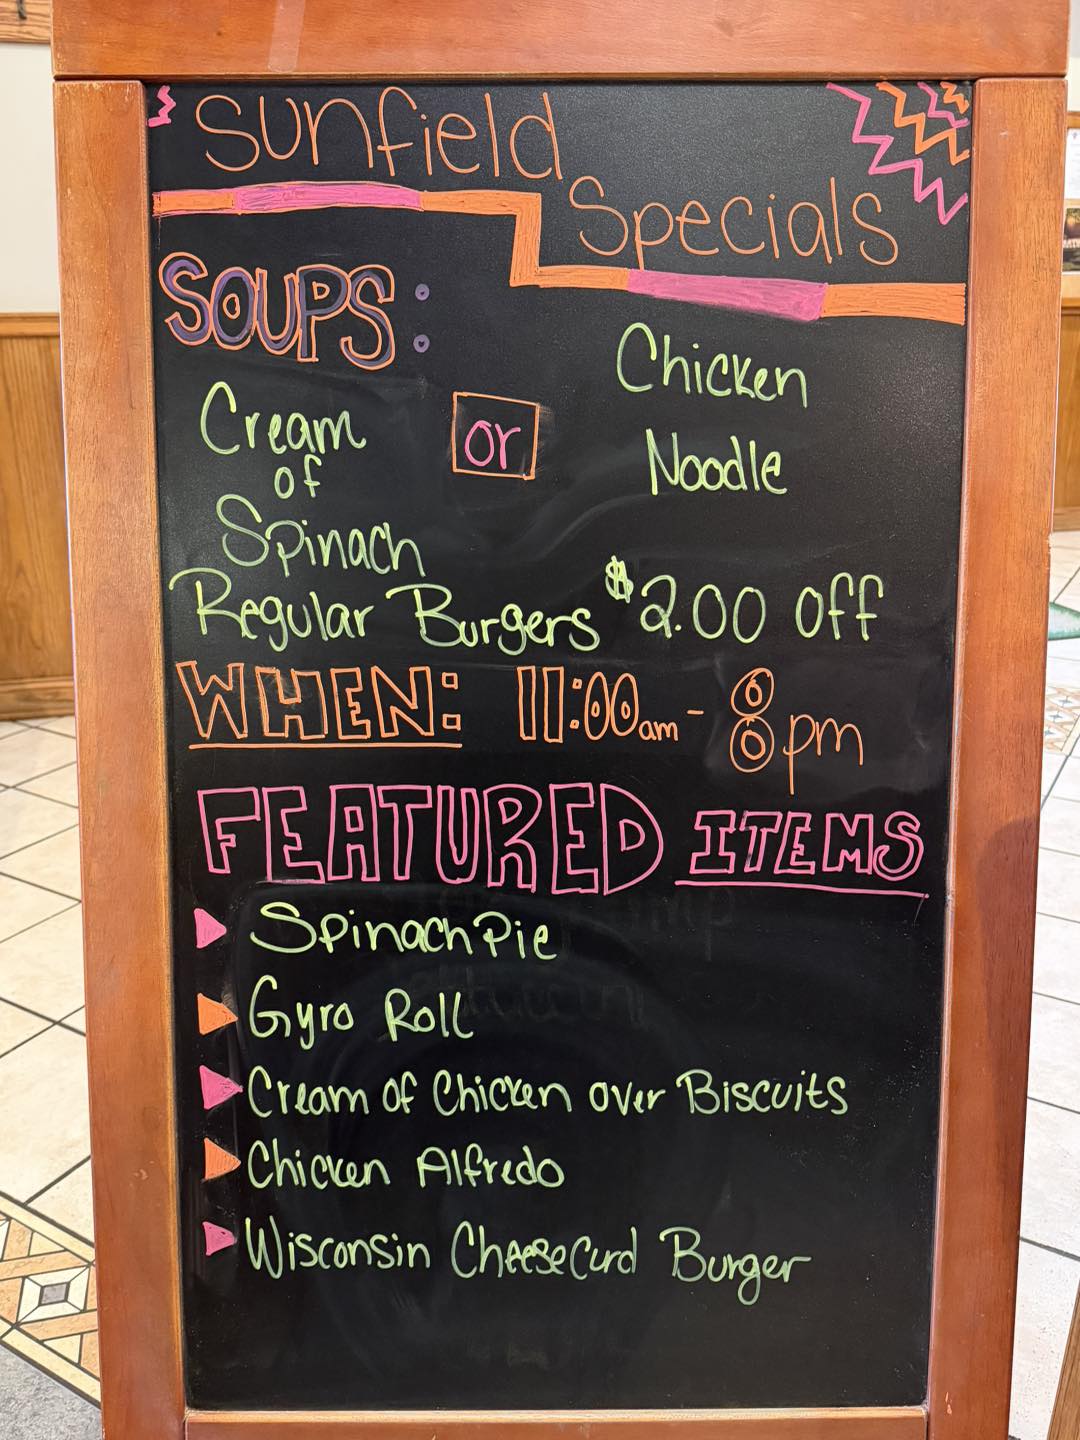 Sunfield
Specials
SOUPS:
Cream
of
Spinach
or
Chicken
Noodle
Regular Burgers $2.00 off
WHEN: 11:00am - 8pm
FEATURED ITEMS
Spinach Pie
Gyro Roll
Cream of Chicken over Biscuits
Chicken Alfredo
Wisconsin CheeseCurd Burger